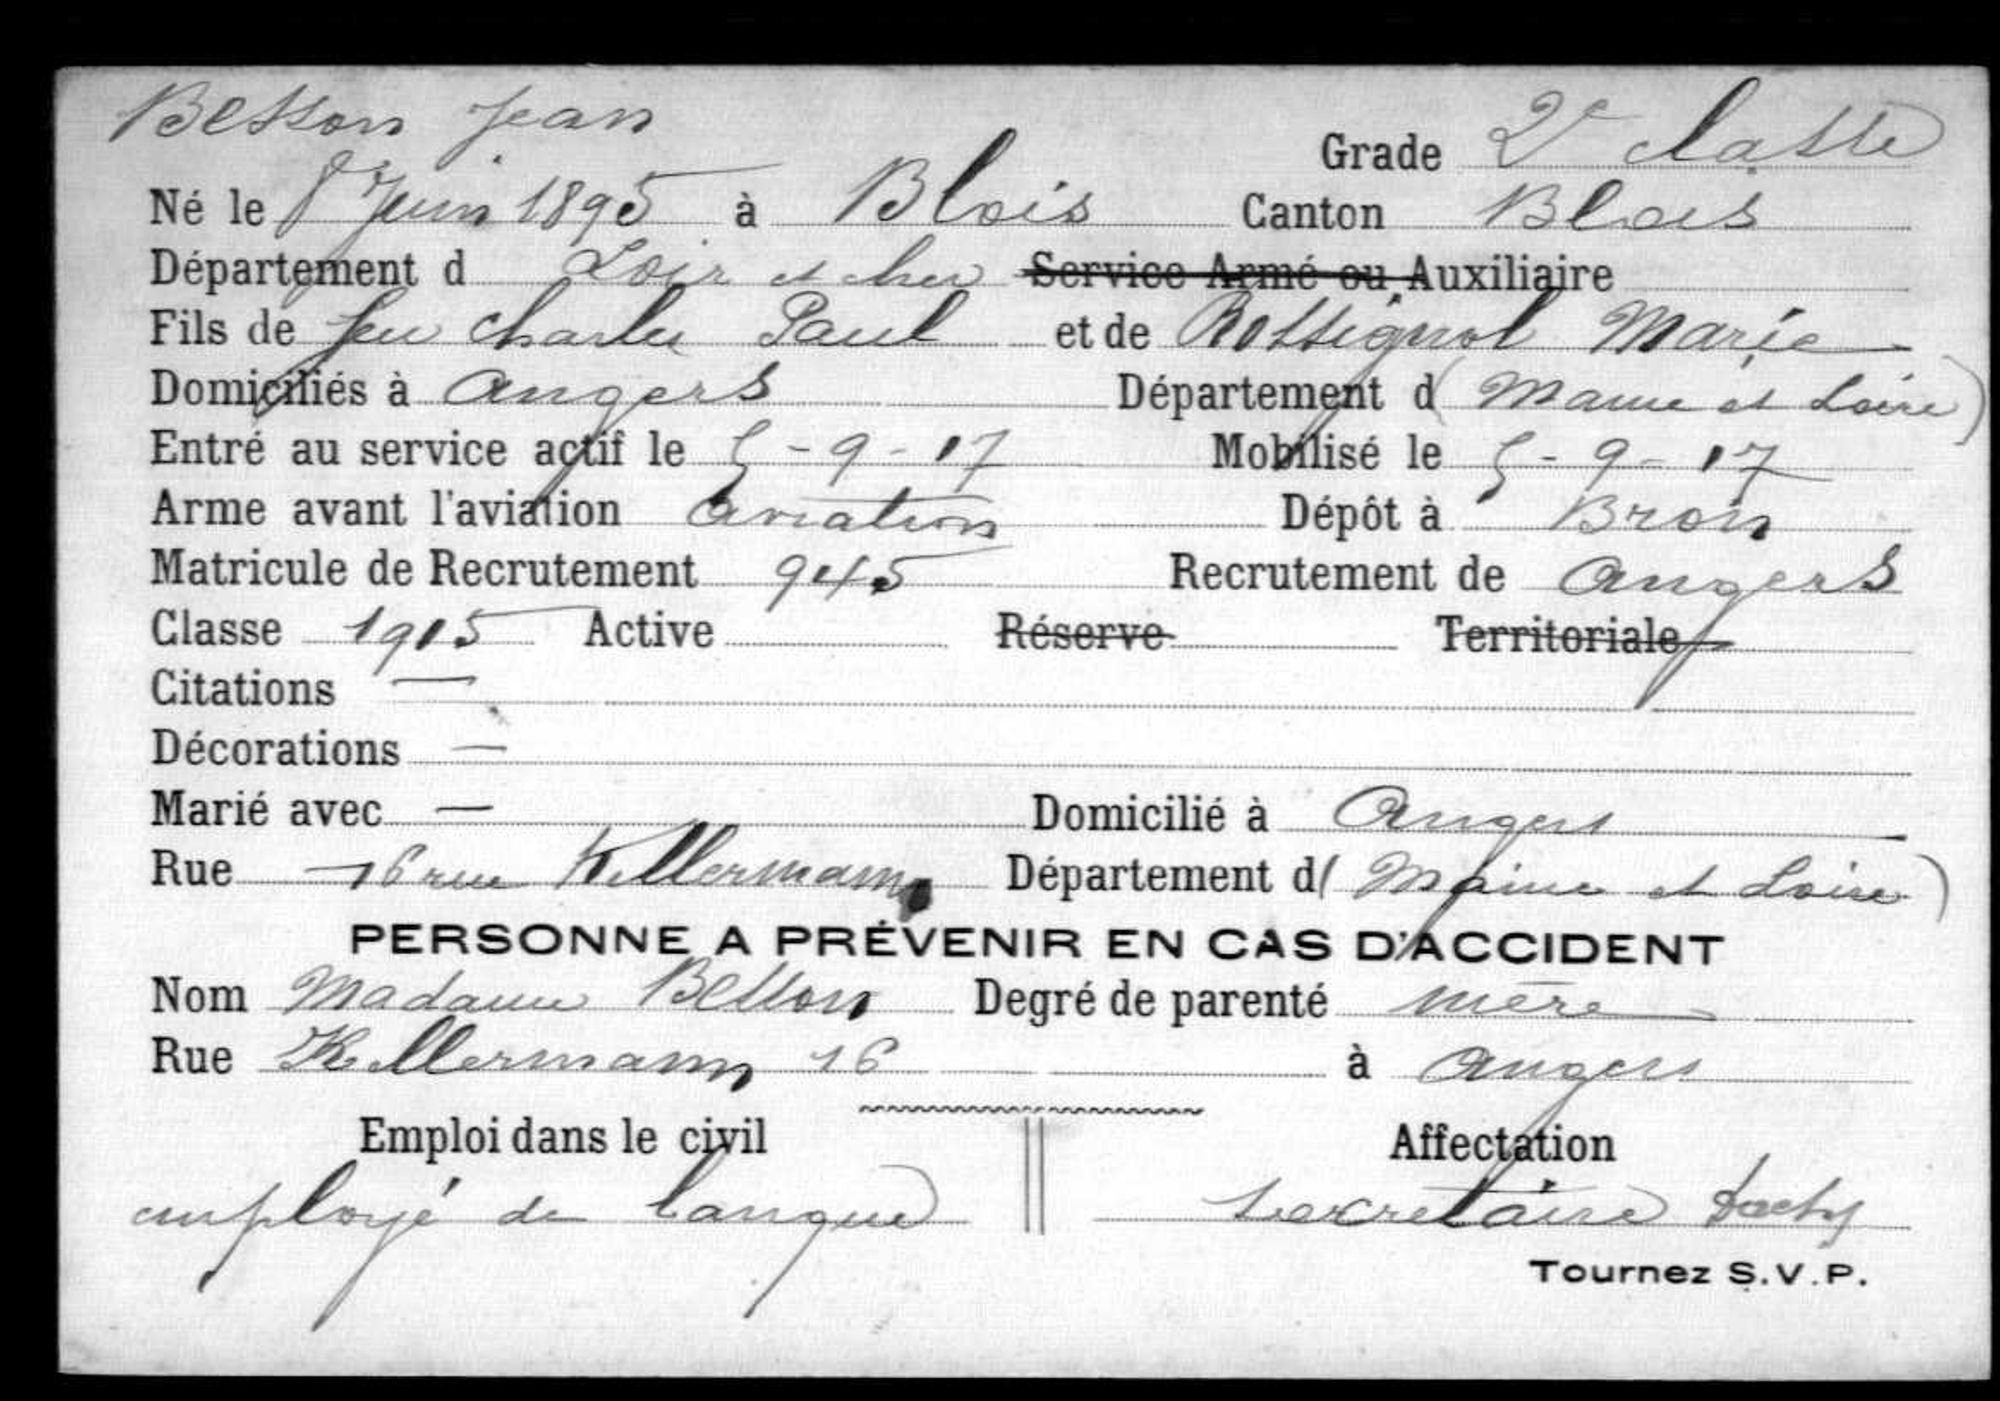 Besson Jean
Grade 2e classe
Né le 8 Juin 1895 à Blois Canton Blois
Département d Loir et cher Service Armé ou Auxiliaire
Fils de feu Charles Paul et de Rossignol Marie
Domiciliés à Angers Département d (Maine et Loire)
Entré au service actif le 5-9-17 Mobilisé le 5-9-17
Arme avant l'aviation aviation Dépôt à Bron
Matricule de Recrutement 945 Recrutement de Angers
Classe 1915 Active Réserve Territoriale
Citations —
Décorations —
Marié avec — Domicilié à Angers
Rue 16 rue Kellermann Département d (Maine et Loire)
PERSONNE A PRÉVENIR EN CAS D'ACCIDENT
Nom Madame Besson Degré de parenté mère
Rue Kellermann 16 à Angers
Emploi dans le civil Affectation
employé de banque secretaire
Tournez S.V.P.